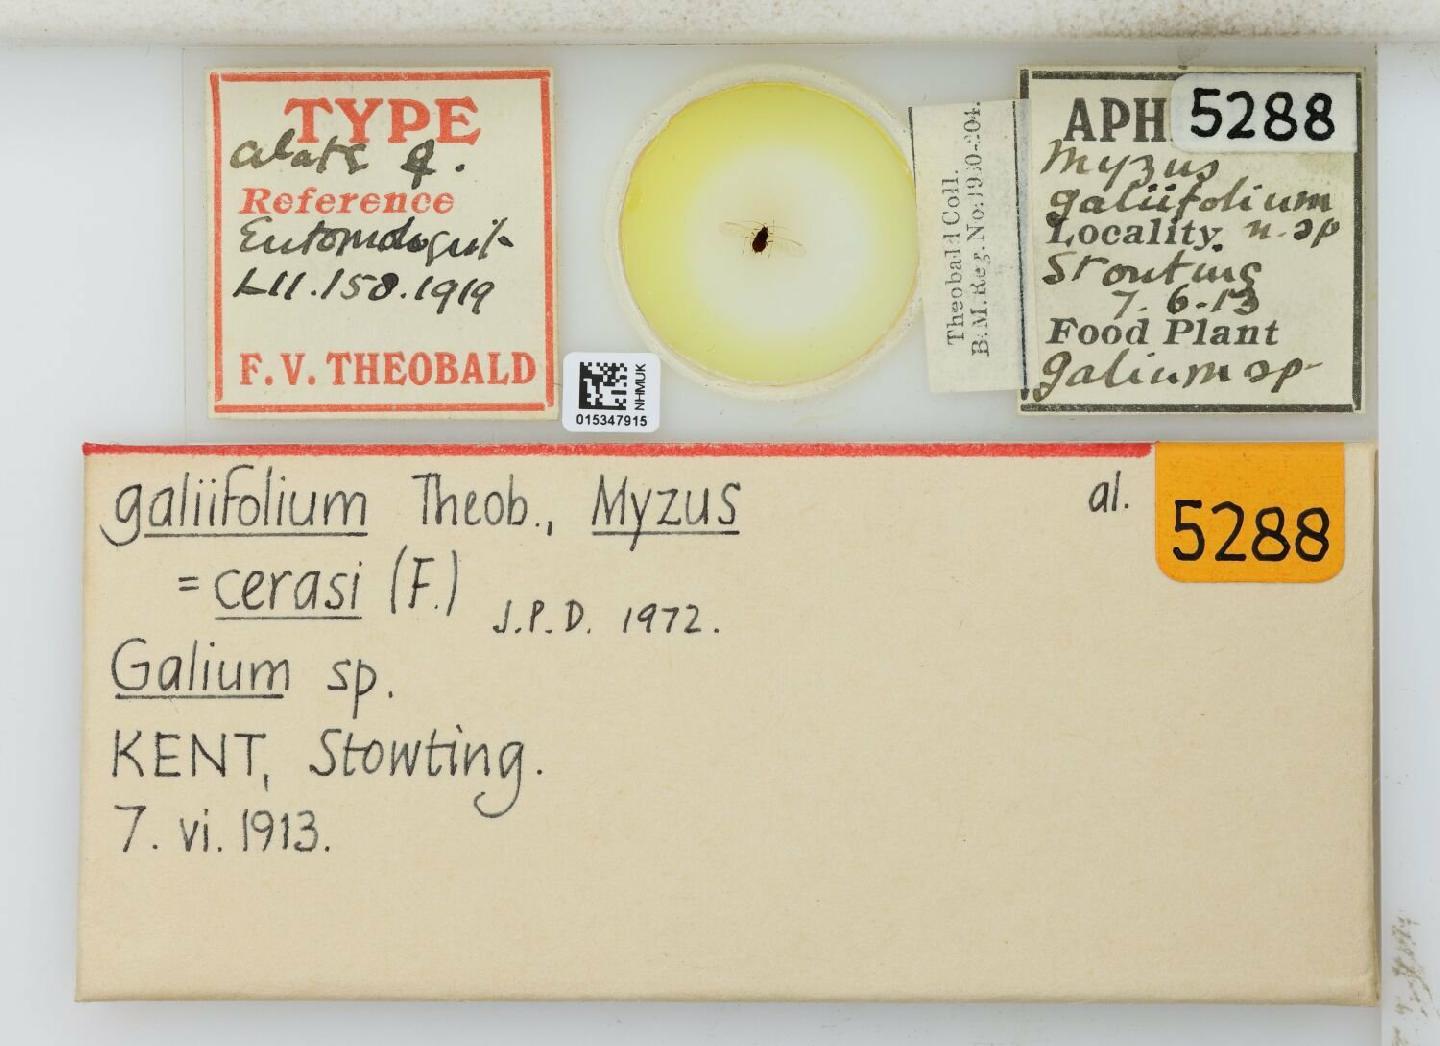 TYPE
alate ♀.
Reference
Entomologist
LII.158.1919
F. V. THEOBALD
NHMUK
015347915
Theobald Coll.
B.M.Reg.No:1930-204.
APH
5288
Myzus
galiifolium
Locality. n.sp
Stouting
7.6.13
Food Plant
galium sp
galiifolium Theob., Myzus
al.
5288
= cerasi (F.) J.P.D. 1972.
Galium sp.
KENT, Stowting.
7. vi. 1913.